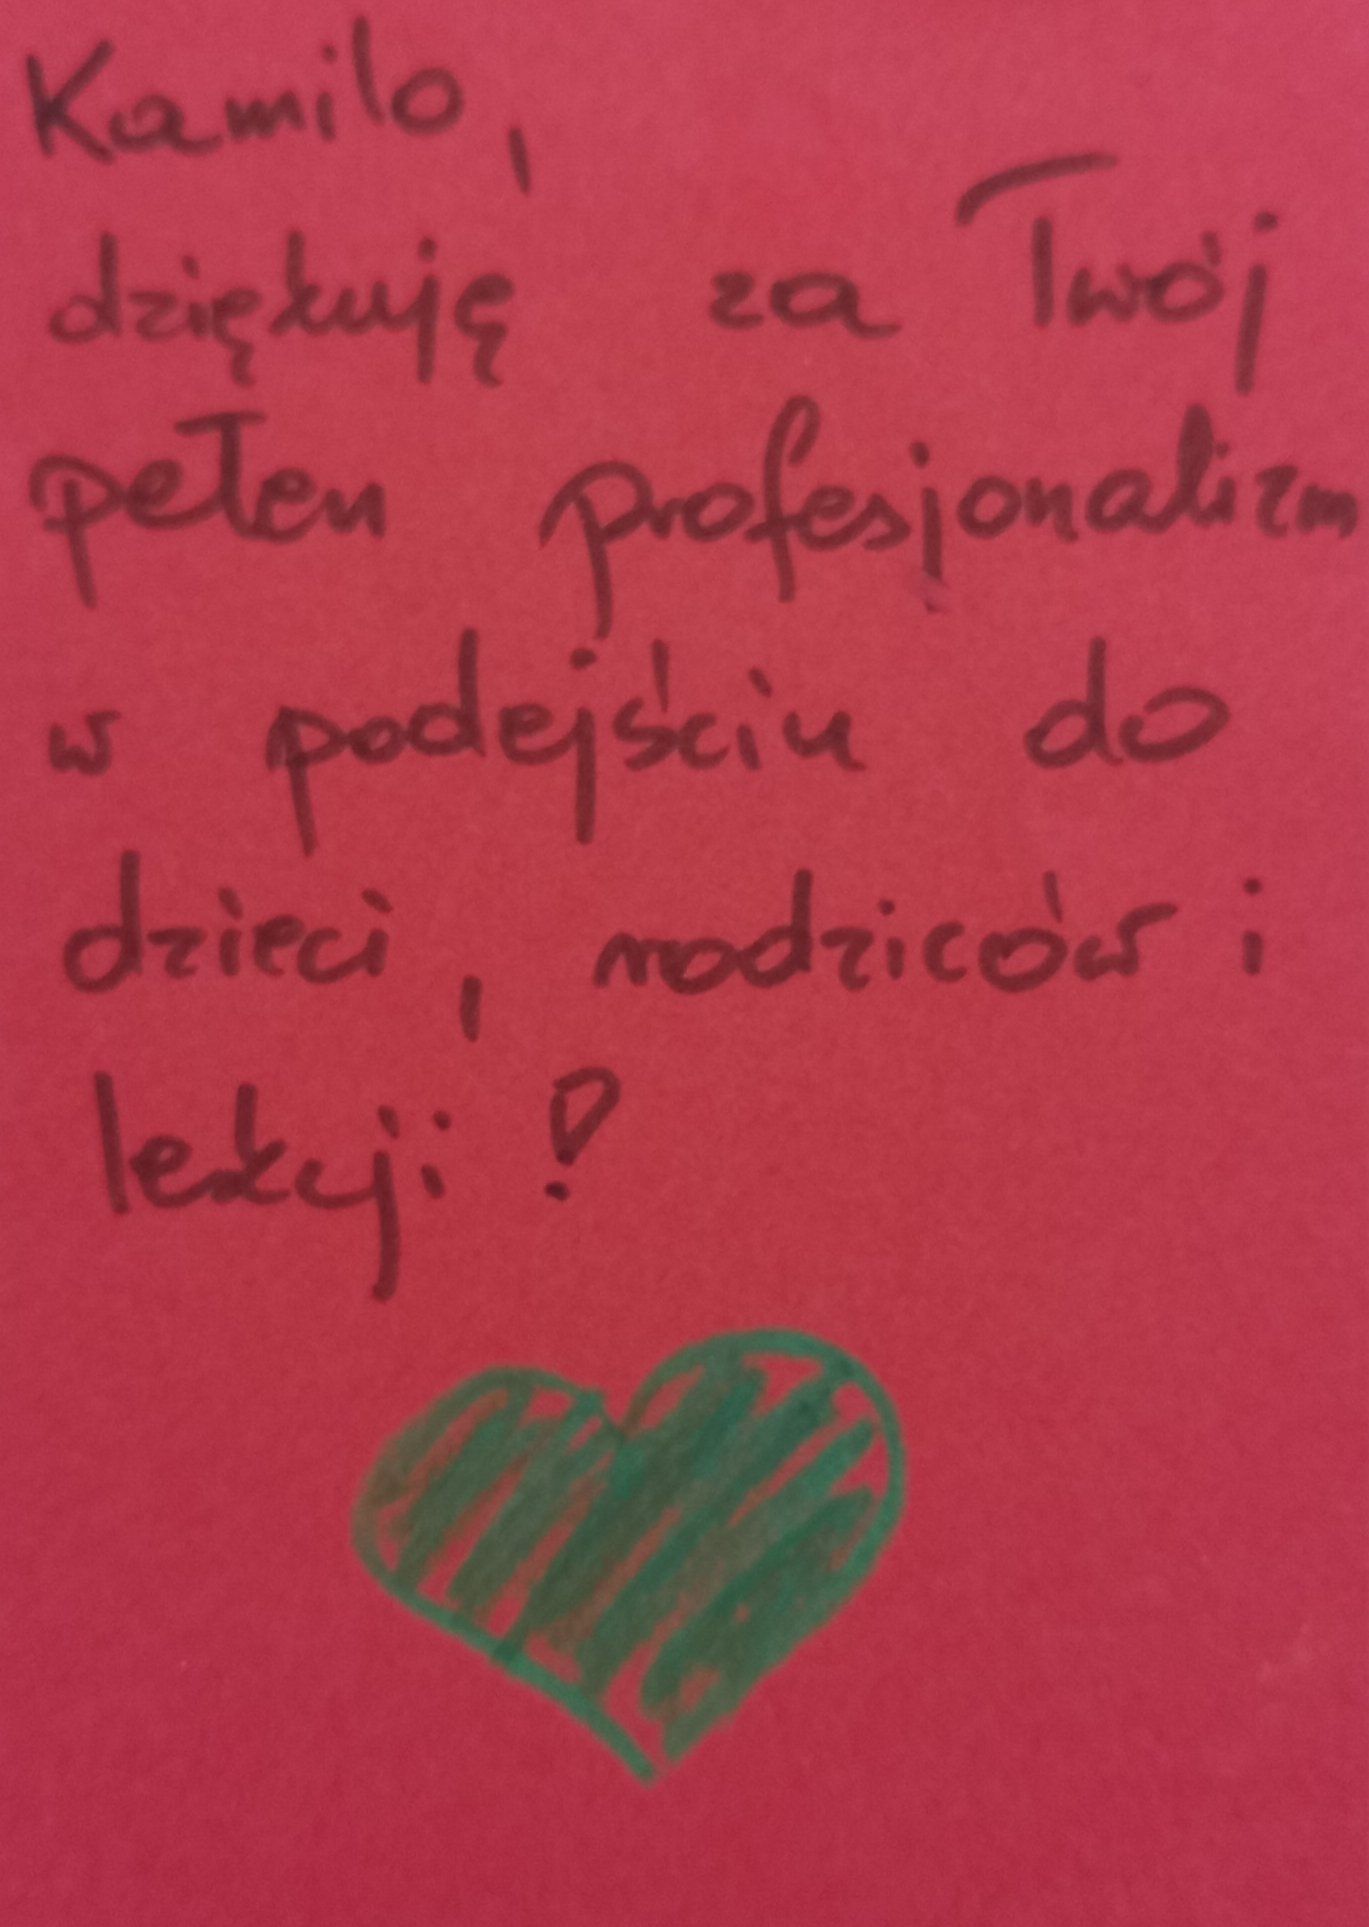 Kamilo,
dziękuję za Twój
pełen profesjonalizm
w podejściu do
dzieci, rodziców i
lekcji!